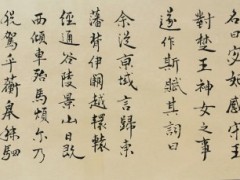 名曰宓妃感宋玉
對楚王神女之事
遂作斯賦其詞曰
余從京域言歸東
藩背伊闕越轘轅
經通谷陵景山日既
西傾車殆馬煩爾乃
稅駕乎蘅皋秣駟